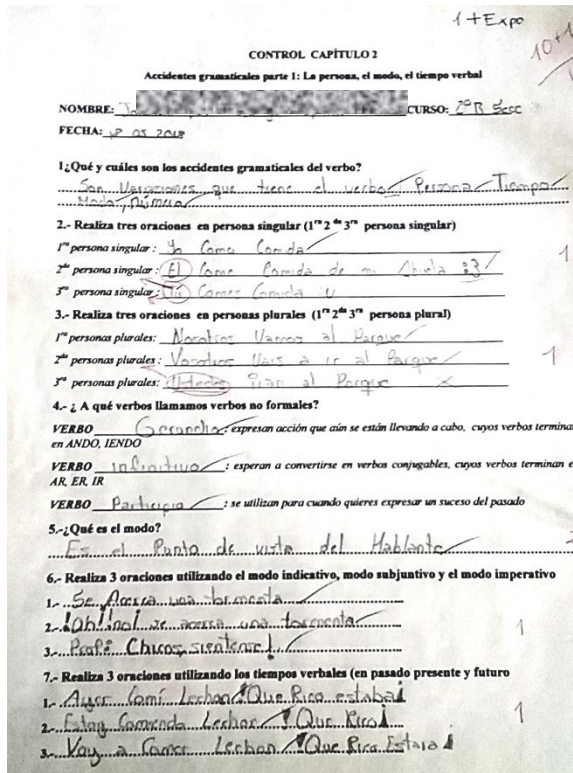 1 + Expo
10+1
CONTROL CAPÍTULO 2
Accidentes gramaticales parte 1: La persona, el modo, el tiempo verbal
NOMBRE: CURSO: 2º B Secc
FECHA: 18 05 2018
1¿Qué y cuáles son los accidentes gramaticales del verbo?
Son Variaciones que tiene el verbo Persona Tiempo
Modo, Número
2.- Realiza tres oraciones en persona singular (1ra 2da 3ra persona singular)
1ra persona singular : Yo Como Comida
2da persona singular : El Come Comida de mi Abuela :3
3ra persona singular : Tú Comes Comida :v
1
3.- Realiza tres oraciones en personas plurales (1ra 2da 3ra persona plural)
1ra personas plurales: Nosotros Vamos al Parque
2da personas plurales : Vosotros Vais a ir al Parque
3ra personas plurales: Ustedes irán al Parque
1
4.- ¿ A qué verbos llamamos verbos no formales?
VERBO Gerundio : expresan acción que aún se están llevando a cabo, cuyos verbos termina
en ANDO, IENDO
VERBO infinitivo : esperan a convertirse en verbos conjugables, cuyos verbos terminan e
AR, ER, IR
VERBO Participio : se utilizan para cuando quieres expresar un suceso del pasado
5.-¿Qué es el modo?
Es el Punto de vista del Hablante
6.- Realiza 3 oraciones utilizando el modo indicativo, modo subjuntivo y el modo imperativo
1.- Se Acerca una tormenta
2.- ¡Oh! ¡no! se acerca una tormenta
3.- Profe: Chicos, sientense!
1
7.- Realiza 3 oraciones utilizando los tiempos verbales (en pasado presente y futuro
1.- Ayer Comí Lechon ¡Que Rico estaba!
2.- Estoy Comiendo Lechon ¡Que Rico!
3.- Voy a Comer Lechon ¡Que Rico Estará!
1